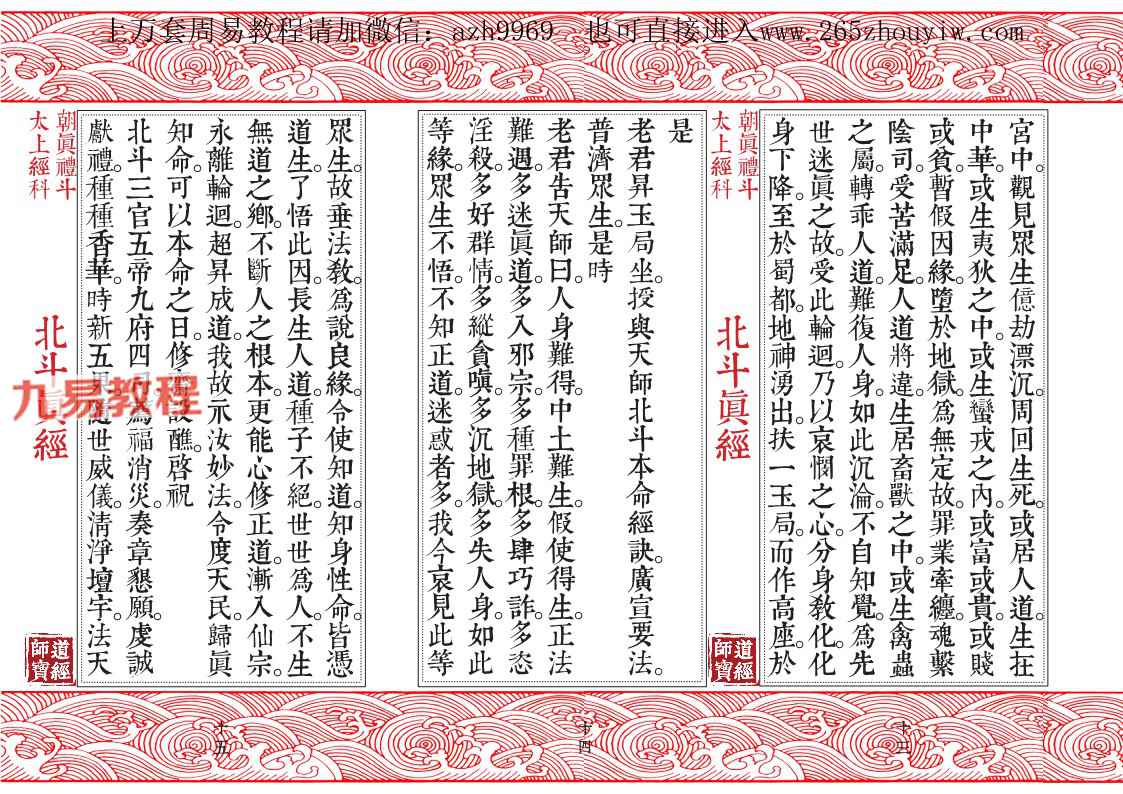 上万套周易教程请加微信：azh9969　也可直接进入www.265zhouyiw.com
宮中。觀見眾生億劫漂沉。周回生死。或居人道生在
中華。或生夷狄之中。或生蠻戎之內。或富或貴。或賤
或貧。暫假因緣。墮於地獄。為無定故。罪業牽纏。魂繫
陰司。受苦滿足。人道將違。生居畜獸之中。或生禽蟲
之屬。轉乖人道。難復人身。如此沉淪。不自知覺。為先
世迷眞之故。受此輪迴。乃以哀憫之心。分身教化。化
身下降。至於蜀都。地神湧出。扶一玉局。而作高座。於
朝眞禮斗
太上經科
北斗眞經
道經
師寶
十三
是
老君昇玉局坐。授與天師北斗本命經訣。廣宣要法。
普濟眾生。是時
老君告天師曰。人身難得。中土難生。假使得生。正法
難遇。多迷眞道。多入邪宗。多種罪根。多肆巧詐。多恣
淫殺。多好群情。多縱貪嗔。多沉地獄。多失人身。如此
等緣。眾生不悟。不知正道。迷惑者多。我今哀見此等
十四
眾生。故垂法教。為說良緣。令使知道。知身性命。皆憑
道生。了悟此因。長生人道。種子不絕。世世為人。不生
無道之鄉。不斷人之根本。更能心修正道。漸入仙宗。
永離輪迴。超昇成道。我故示汝妙法。令度天民。歸眞
知命。可以本命之日。修齋設醮。啓祝
北斗三官五帝九府四司。為福消災。奏章懇願。虔誠
獻禮。種種香華。時新五果。隨世威儀。清淨壇宇。法天
朝眞禮斗
太上經科
北斗眞經
九易教程
道經
師寶
十五